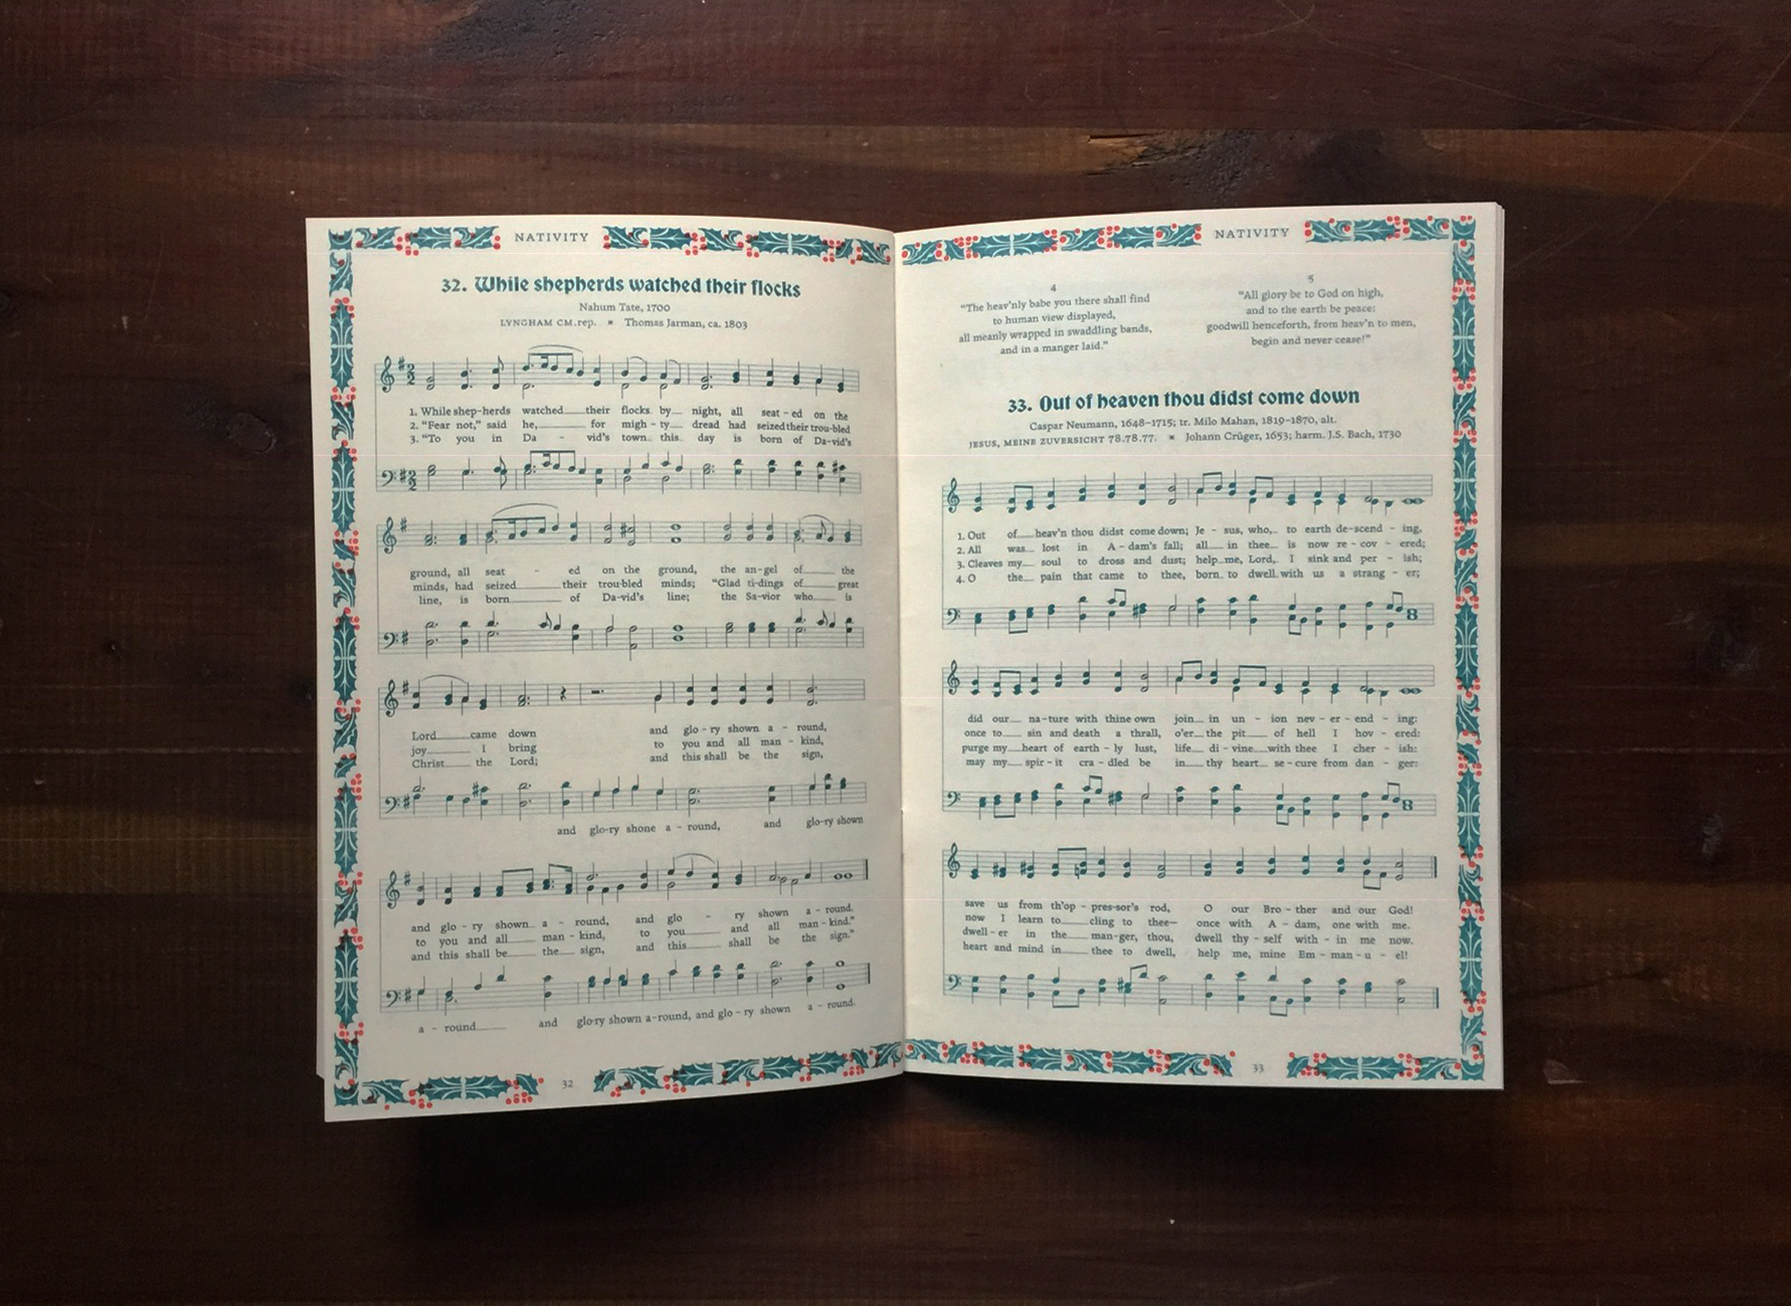 NATIVITY
32. While shepherds watched their flocks
Nahum Tate, 1700
LYNGHAM CM.rep. * Thomas Jarman, ca. 1803
1. While shep-herds watched their flocks by night, all seat-ed on the
2. "Fear not," said he, for migh-ty dread had seized their trou-bled
3. "To you in Da-vid's town this day is born of Da-vid's
ground, all seat-ed on the ground, the an-gel of the
minds, had seized their trou-bled minds; "Glad ti-dings of great
line, is born of Da-vid's line; the Sa-vior who is
Lord came down and glo-ry shown a-round,
joy I bring to you and all man-kind,
Christ the Lord; and this shall be the sign,
and glo-ry shone a-round, and glo-ry shown
and glo-ry shown a-round, and glo-ry shown a-round.
to you and all man-kind, to you and all man-kind."
and this shall be the sign, and this shall be the sign."
a-round and glo-ry shown a-round, and glo-ry shown a-round.
32
NATIVITY
4
"The heav'nly babe you there shall find
to human view displayed,
all meanly wrapped in swaddling bands,
and in a manger laid."
5
"All glory be to God on high,
and to the earth be peace:
goodwill henceforth, from heav'n to men,
begin and never cease!"
33. Out of heaven thou didst come down
Caspar Neumann, 1648–1715; tr. Milo Mahan, 1819–1870, alt.
JESUS, MEINE ZUVERSICHT 78.78.77. * Johann Crüger, 1653; harm. J.S. Bach, 1730
1. Out of heav'n thou didst come down; Je-sus, who, to earth de-scend-ing,
2. All was lost in A-dam's fall; all in thee is now re-cov-ered;
3. Cleaves my soul to dross and dust; help me, Lord, I sink and per-ish;
4. O the pain that came to thee, born to dwell with us a strang-er;
did our na-ture with thine own join in un-ion nev-er-end-ing:
once to sin and death a thrall, o'er the pit of hell I hov-ered:
purge my heart of earth-ly lust, life di-vine with thee I cher-ish:
may my spir-it cra-dled be in thy heart se-cure from dan-ger:
save us from th'op-pres-sor's rod, O our Bro-ther and our God!
now I learn to cling to thee— once with A-dam, one with me.
dwell-er in the man-ger, thou, dwell thy-self with-in me now.
heart and mind in thee to dwell, help me, mine Em-man-u-el!
33